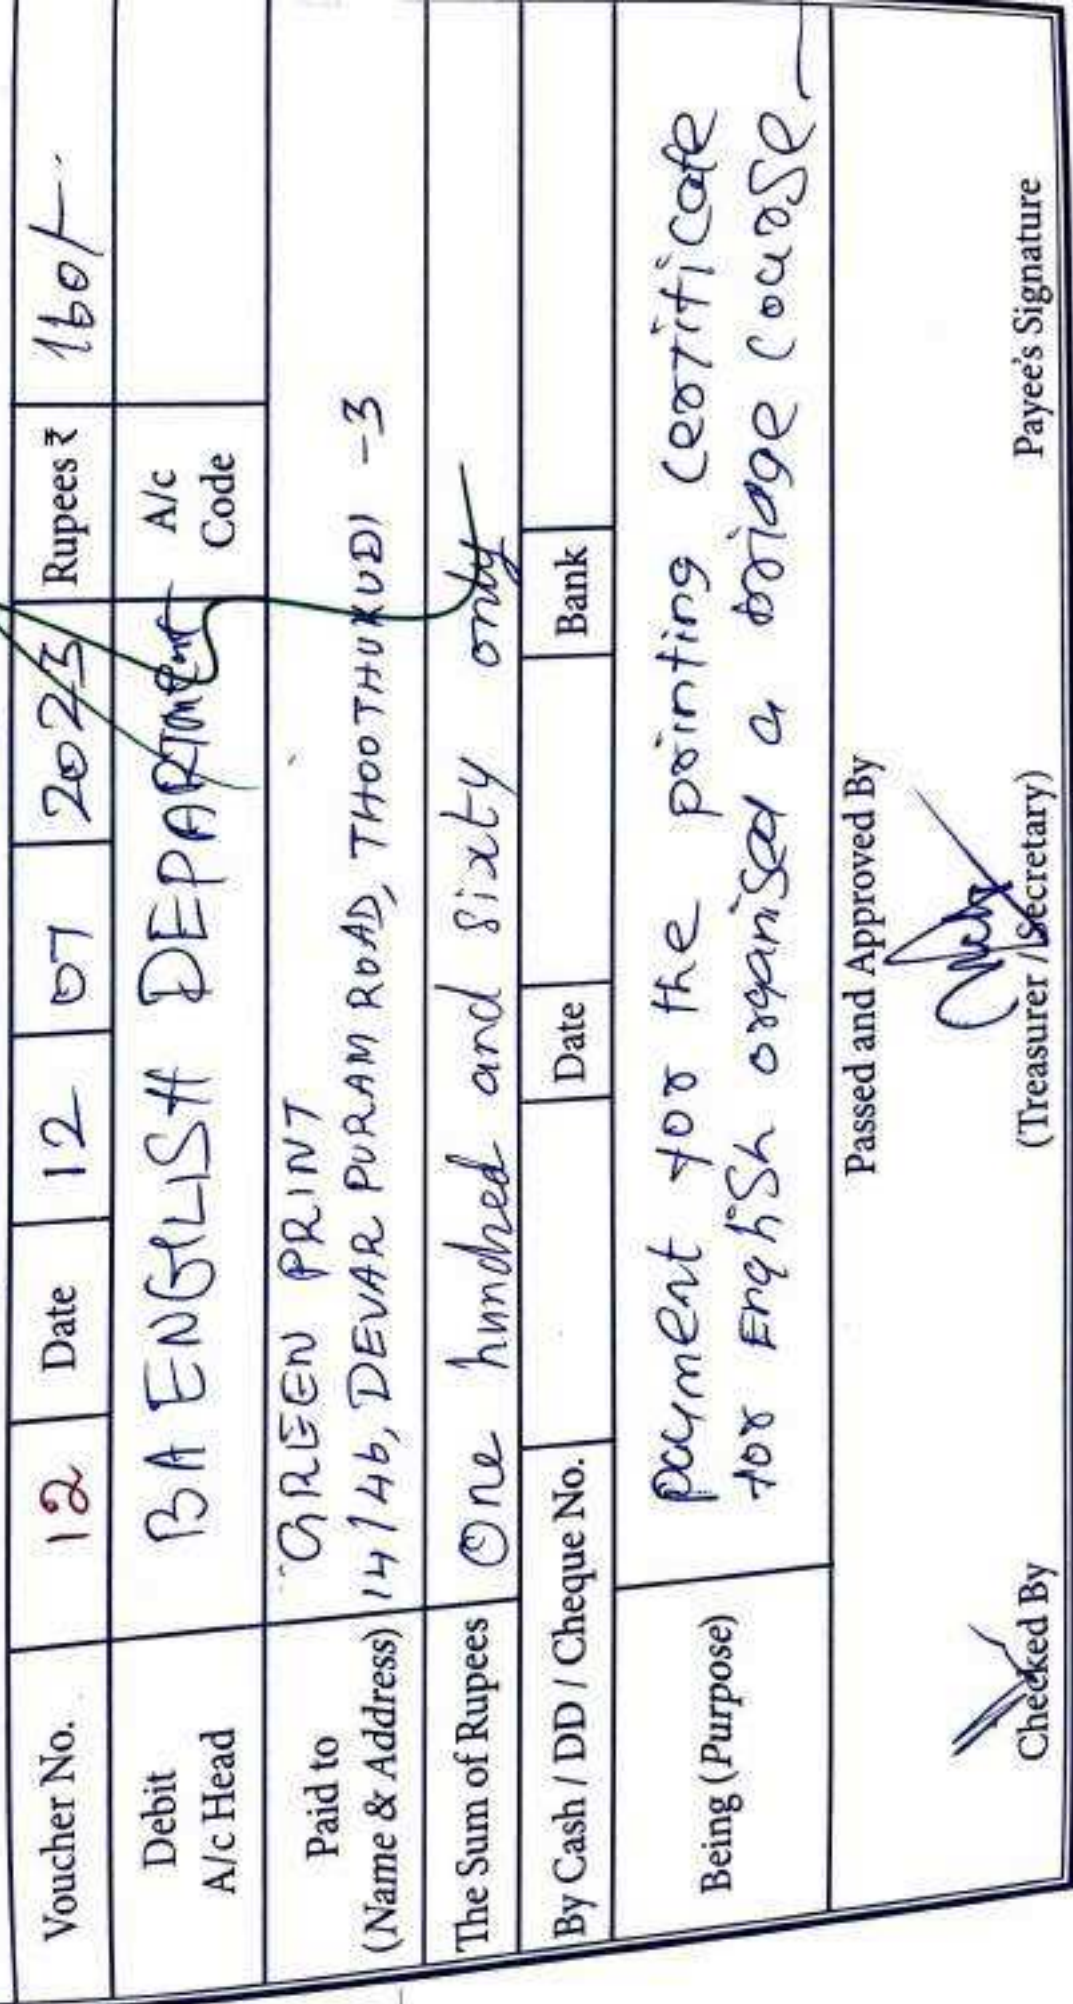 Voucher No. 12 Date 12 07 2023 Rupees ₹ 160/-
Debit A/c Head BA ENGLISH DEPARTMENT A/c Code
Paid to GREEN PRINT
(Name & Address) 14/46, DEVAR PURAM ROAD, THOOTHUKUDI -3
The Sum of Rupees One hundred and sixty only
By Cash / DD / Cheque No. Date Bank
Being (Purpose) payment for the printing certificate
for English organised a brige course
Passed and Approved By
Checked By (Treasurer / Secretary) Payee's Signature